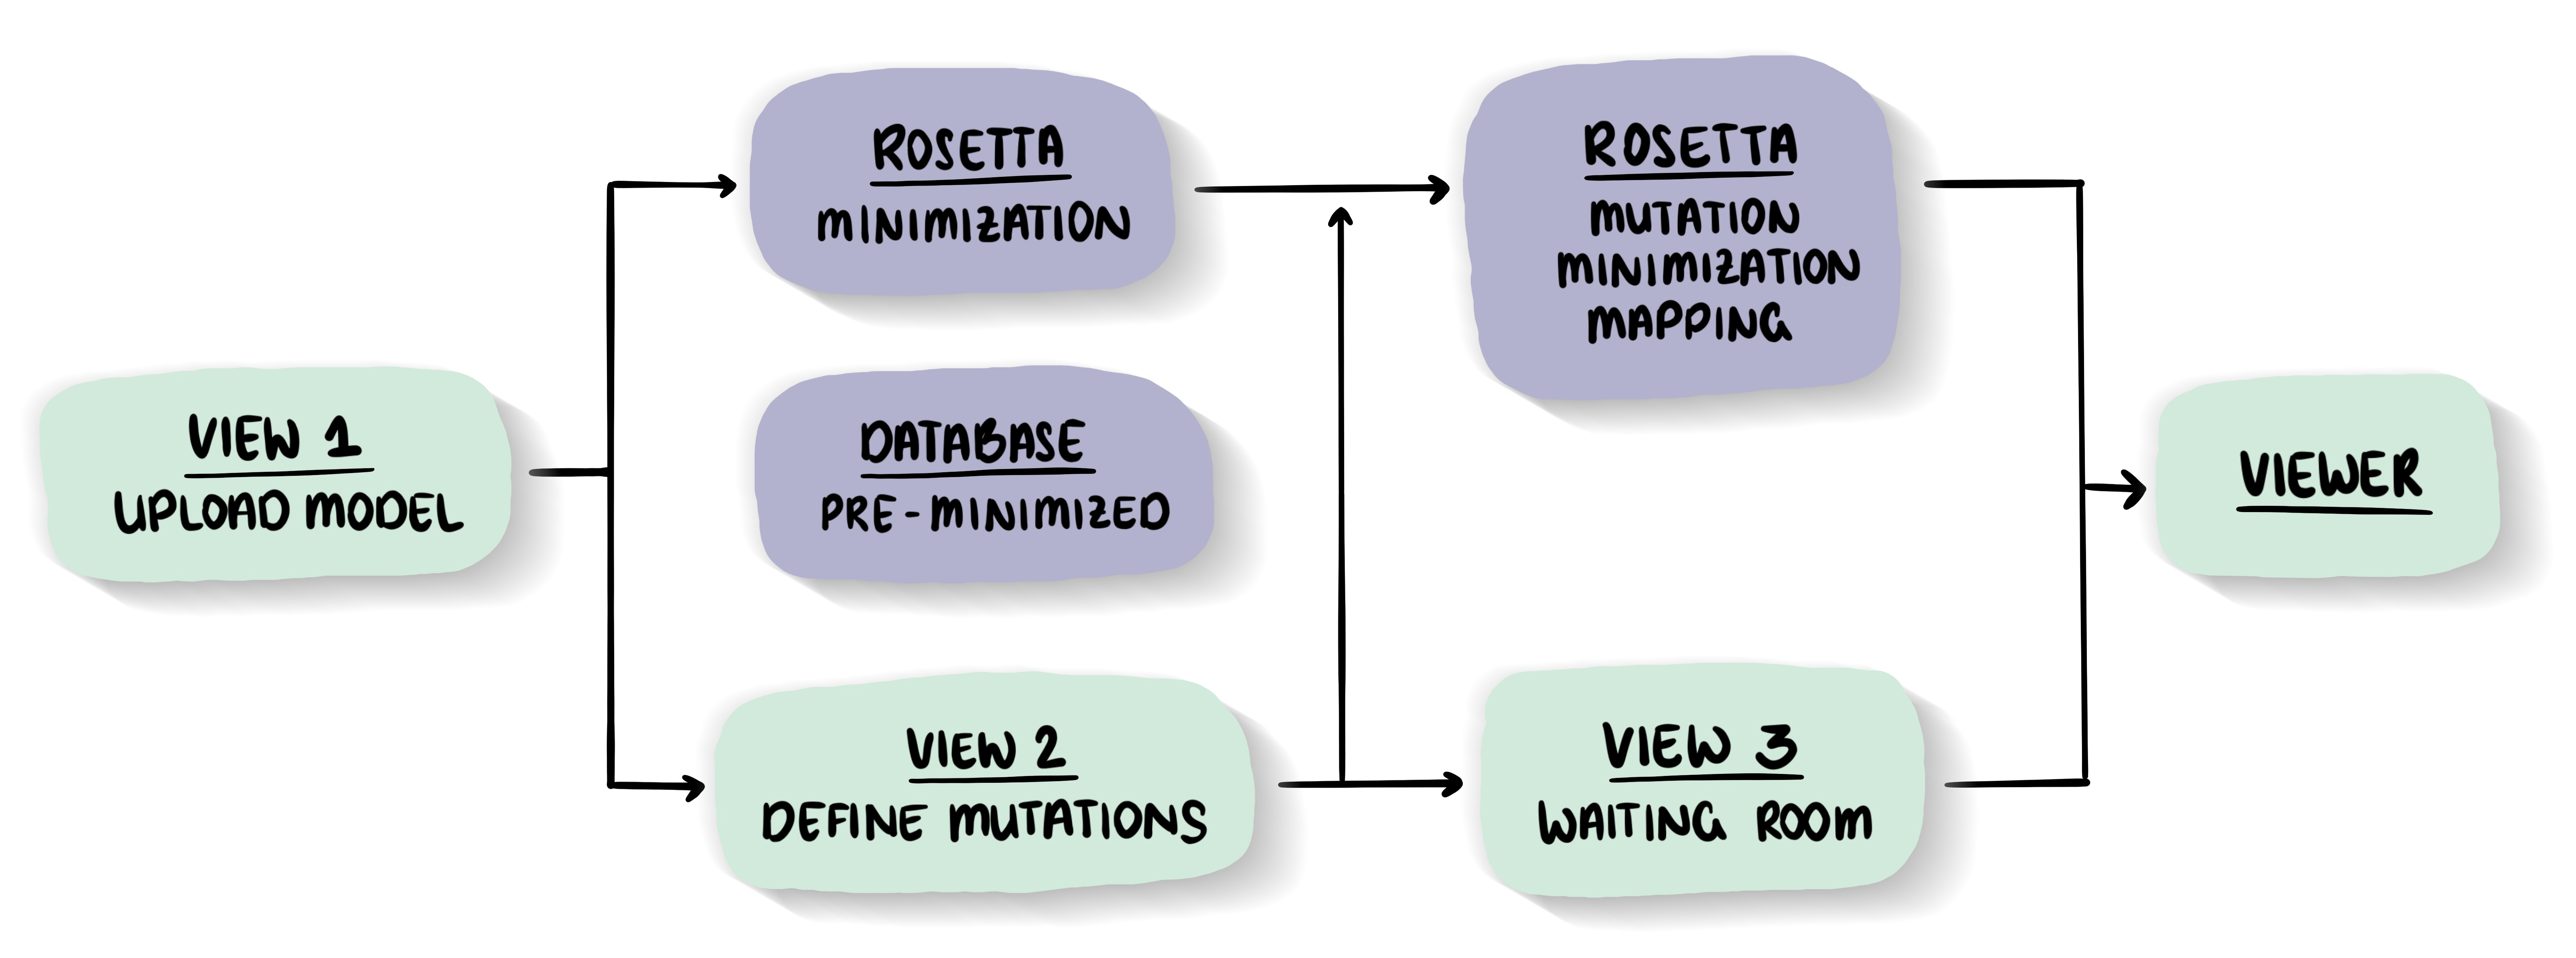 VIEW 1
UPLOAD MODEL
ROSETTA
MINIMIZATION
DATABASE
PRE-MINIMIZED
VIEW 2
DEFINE MUTATIONS
ROSETTA
MUTATION
MINIMIZATION
MAPPING
VIEW 3
WAITING ROOM
VIEWER